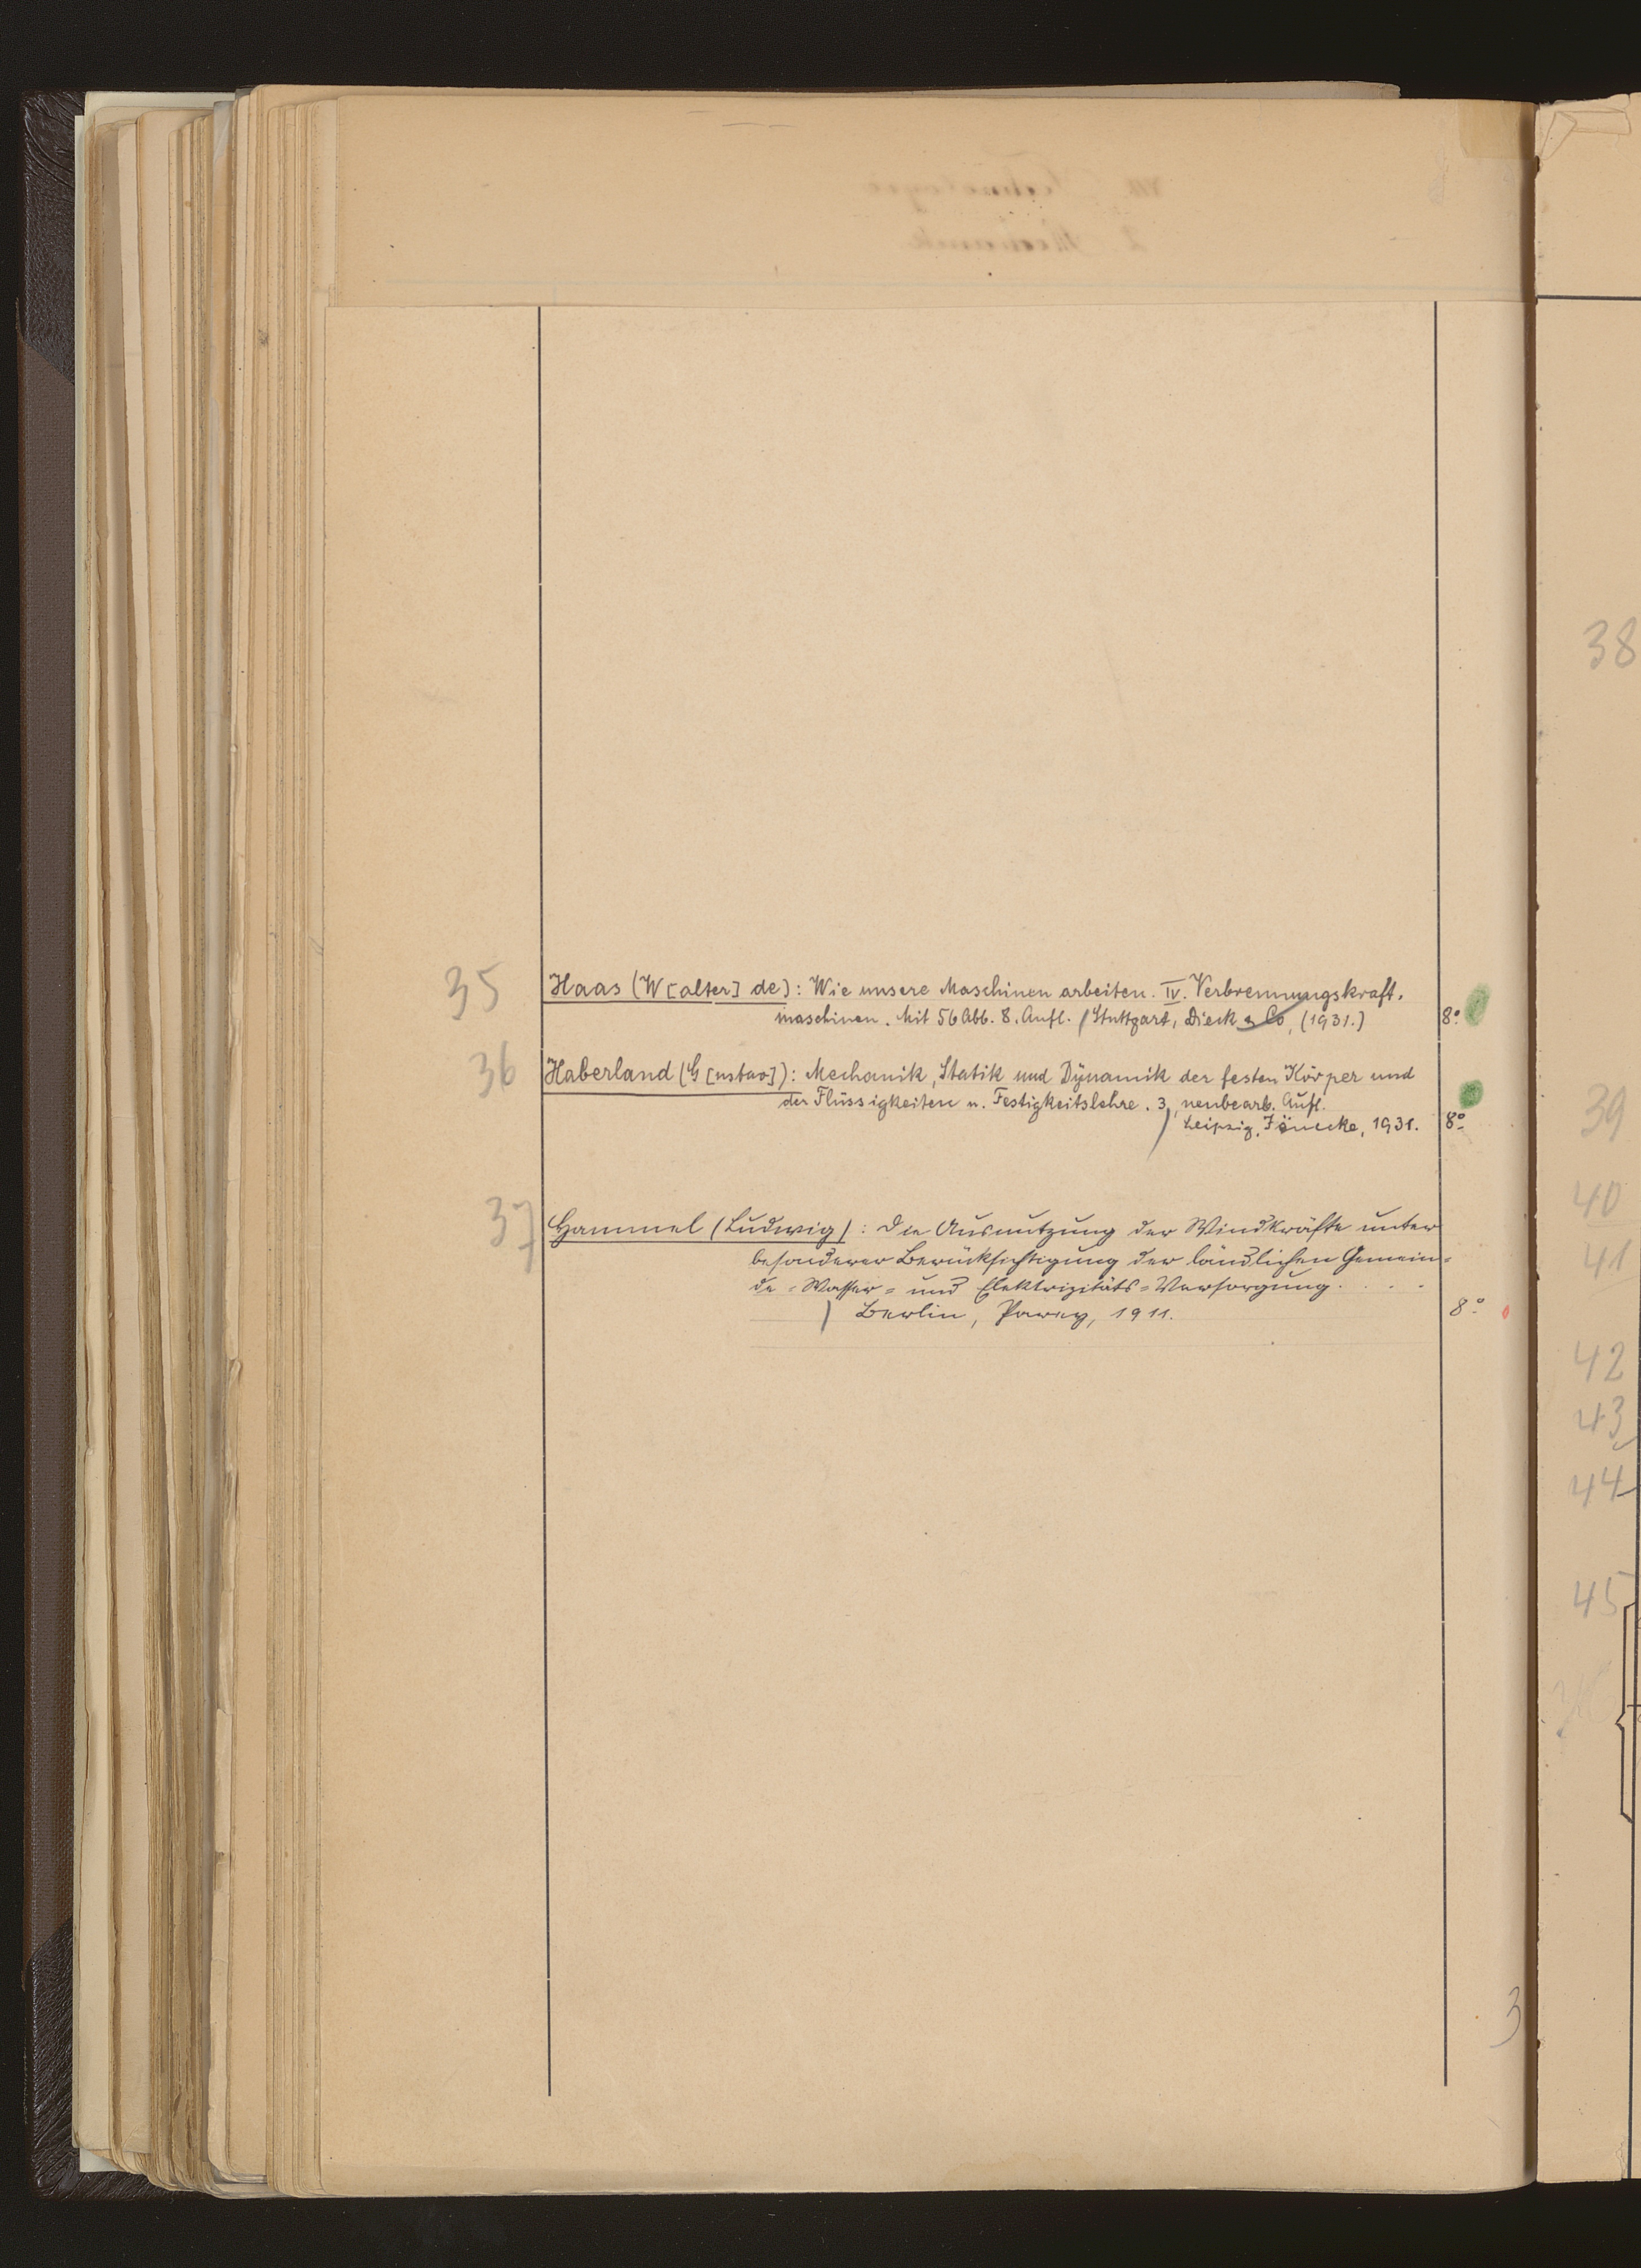 35 Haas (W[alter] de): Wie unsere Maschinen arbeiten. IV. Verbrennungskraft-
maschinen. Mit 56 Abb. 8. Aufl. / Stuttgart, Dieck & Co, (1931.) 8º
36 Haberland (G[ustav]): Mechanik, Statik und Dÿnamik der festen Körper und
der Flüssigkeiten u. Festigkeitslehre. 3, neubearb. Aufl.
/ Leipzig, Jänecke, 1931. 8º
37 Hammel (Ludwig): Die Ausnutzung der Windkräfte unter
besonderer Berücksichtigung der ländlichen Gemein-
de-Wasser- und Elektrizitäts-Versorgung. . . . .
/ Berlin, Parey, 1911. 8º
3
38
39
40
41
42
43
44
45